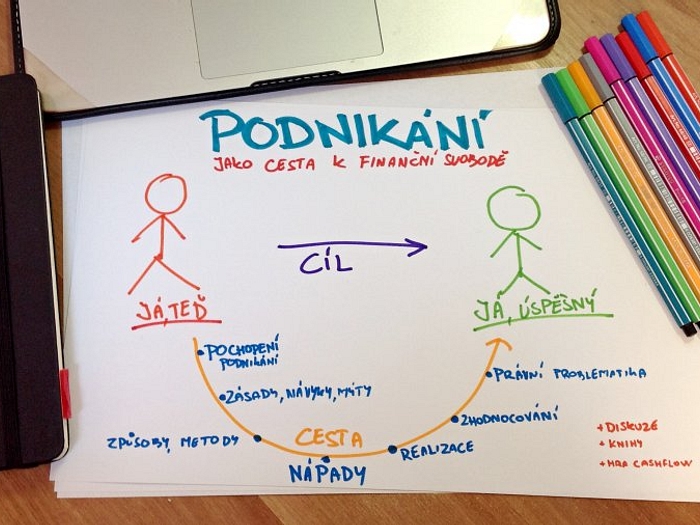 PODNIKÁNÍ
JAKO CESTA K FINANČNÍ SVOBODĚ
CÍL
JÁ, TEĎ
JÁ, ÚSPĚŠNÝ
POCHOPENÍ
PODNIKÁNÍ
ZÁSADY, NÁVYKY, MÝTY
ZPŮSOBY, METODY
CESTA
NÁPADY
REALIZACE
ZHODNOCOVÁNÍ
PRÁVNÍ PROBLEMATIKA
+ DISKUZE
+ KNIHY
+ HRA CASHFLOW